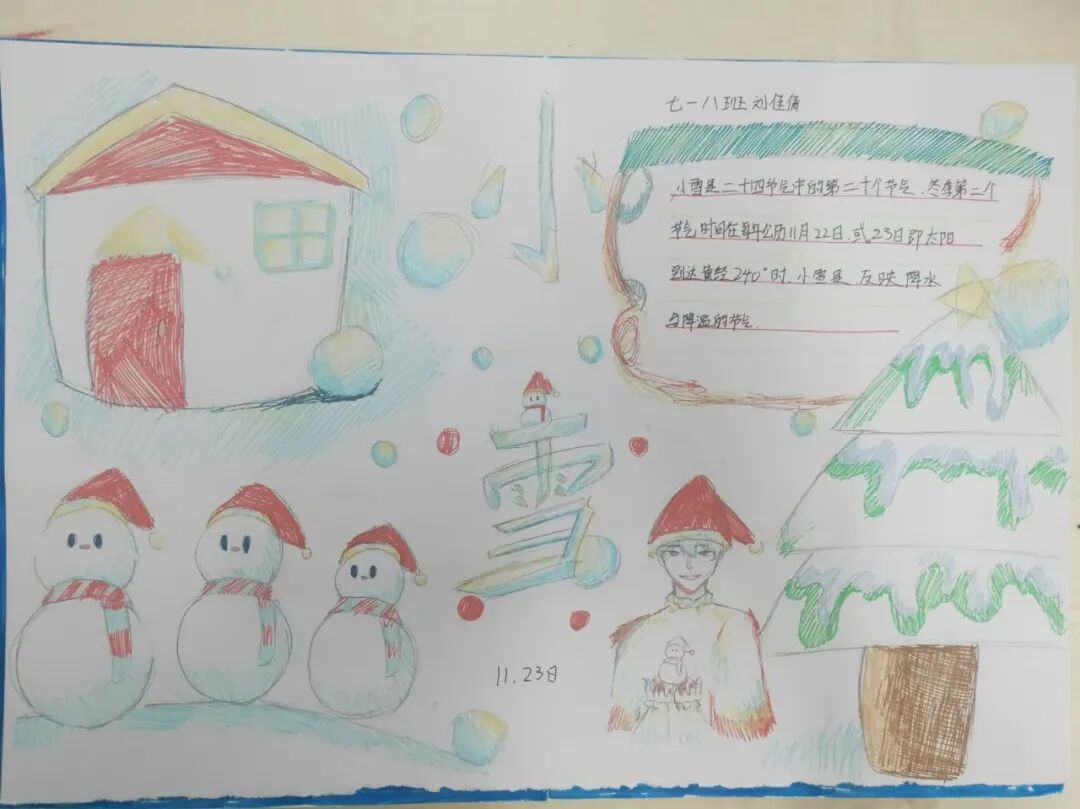 小雪
七一八班刘佳倩
小雪是二十四节气中的第二十个节气.冬季第二个
节气时间在每年公历11月22日.或23日即太阳
到达黄经240°时.小雪是.反映降水
与降温的节气.
11.23日